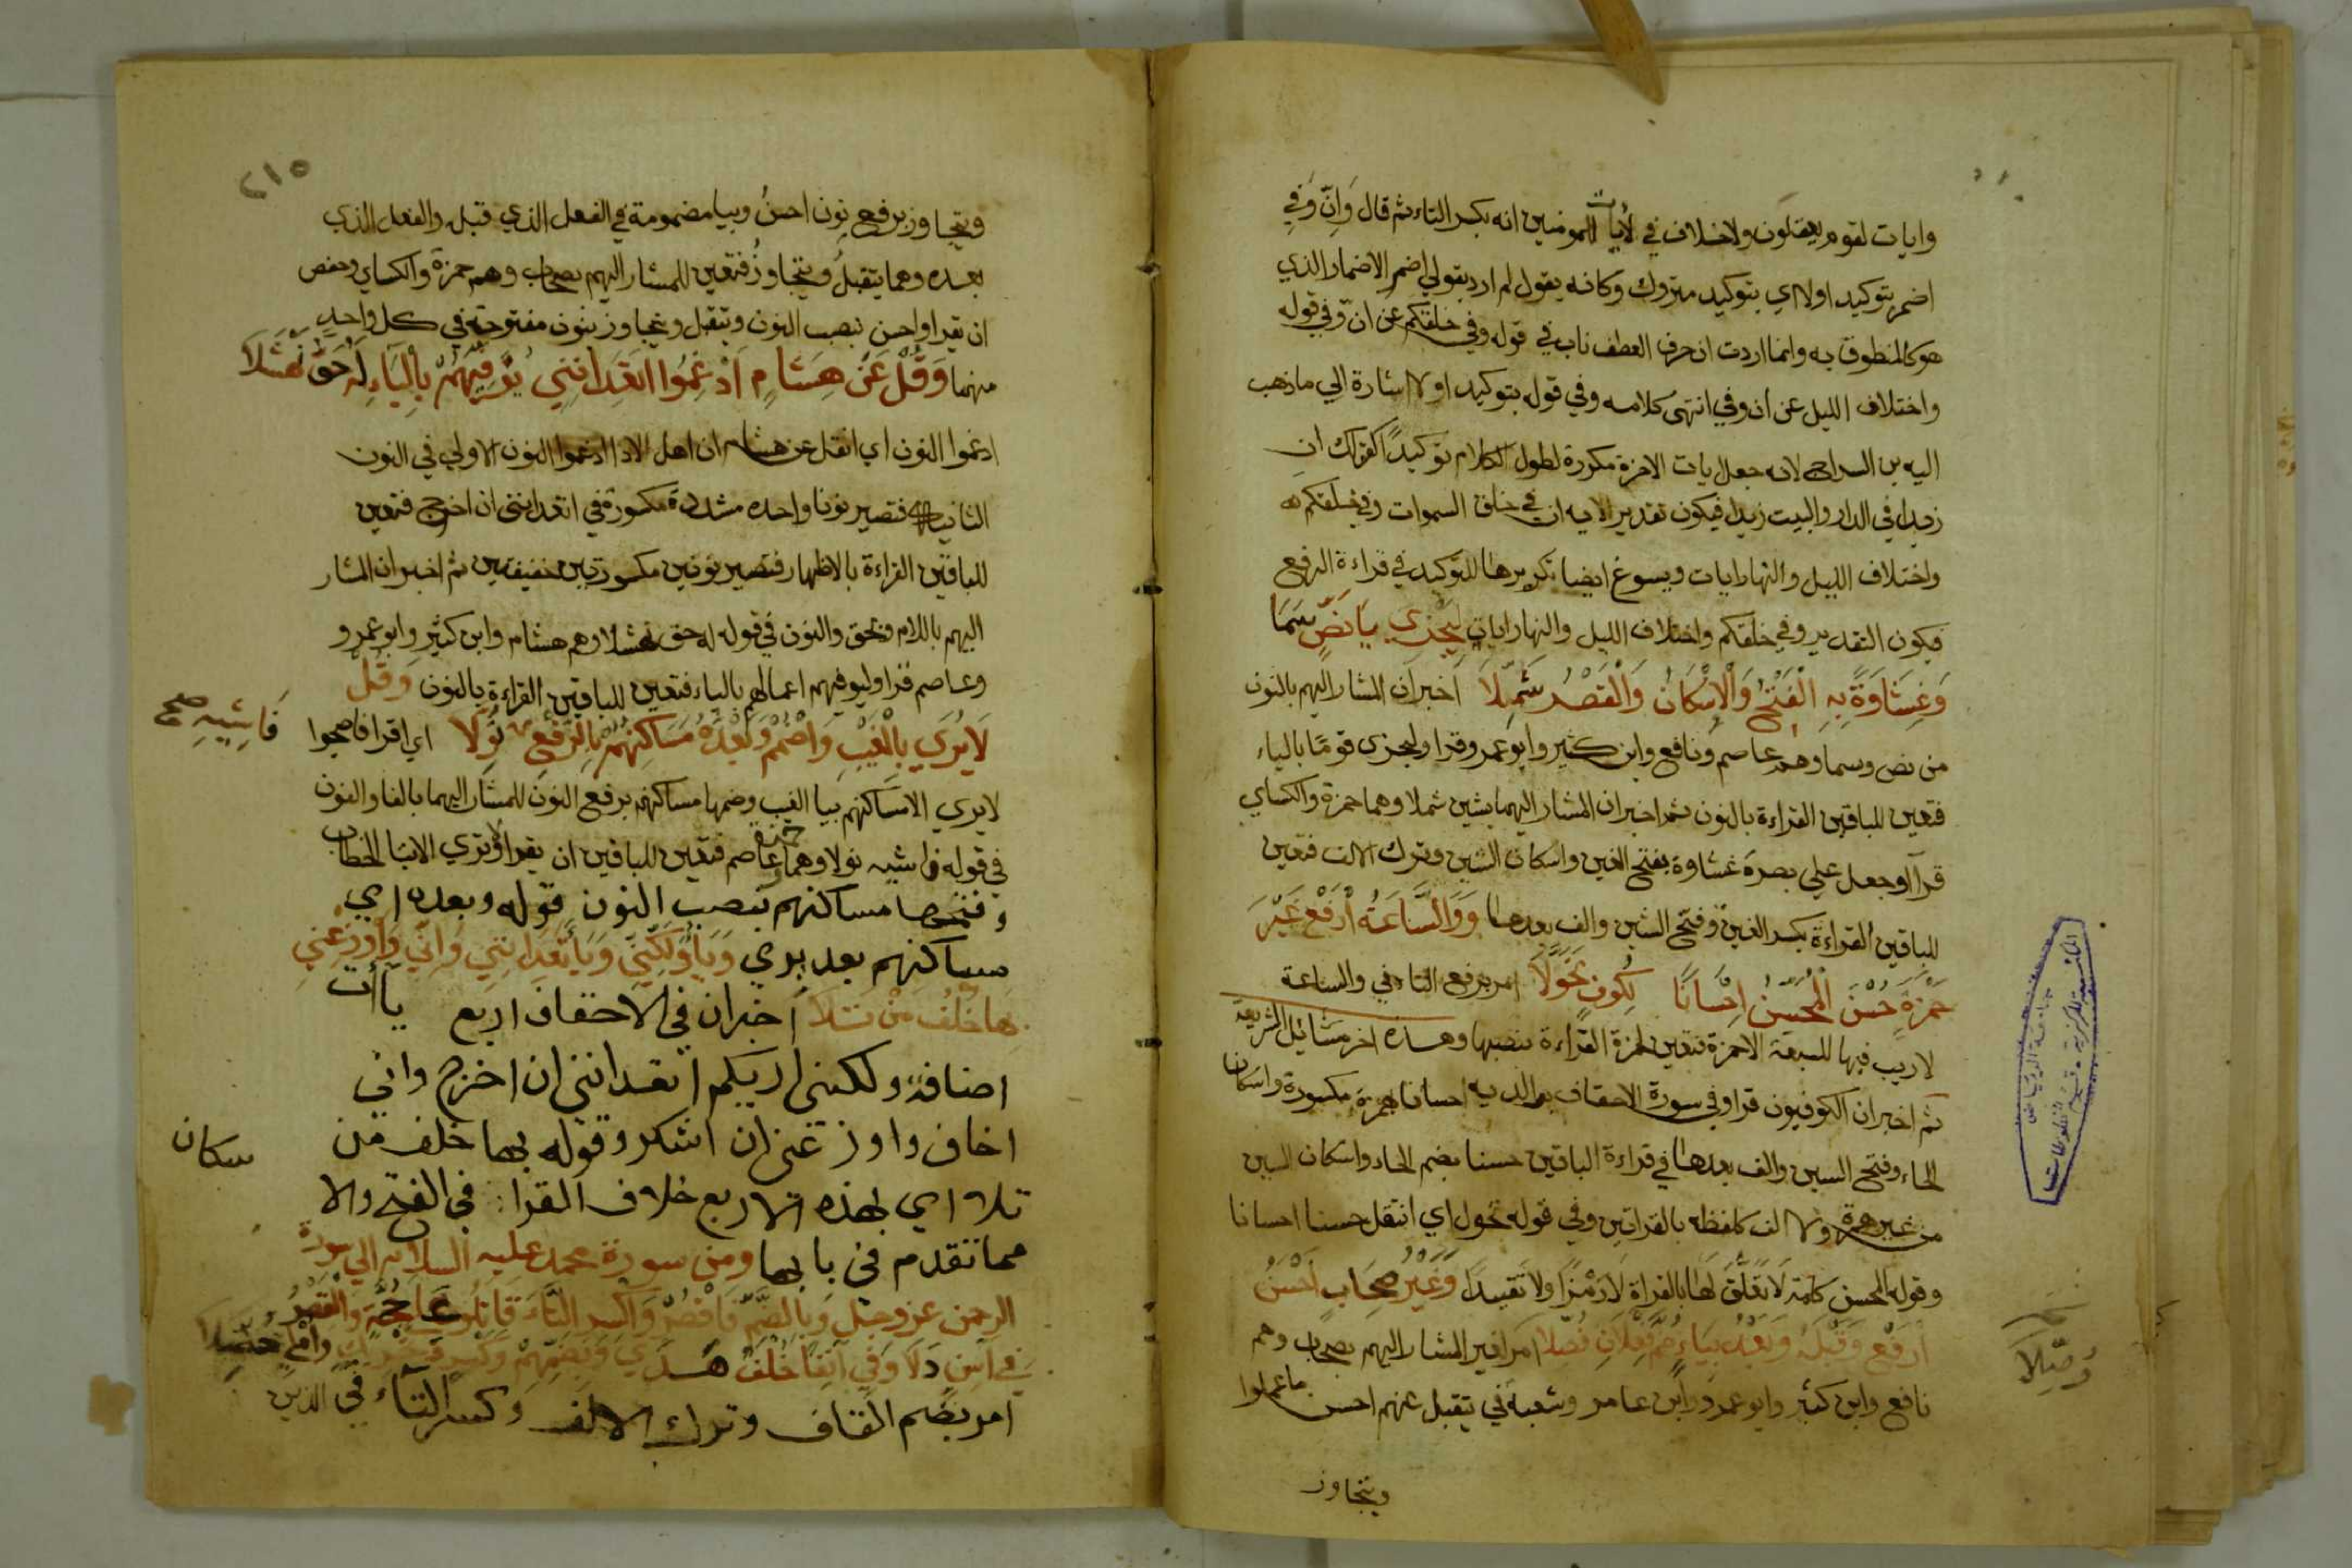 وايات لقوم يعقلون ولاخلاف في لايات للمومنين انه بكسر التاء ثم قال وَاِنّ وَفِي
اضمر بتوكيد اولا اي بتوكيد متروك وكانه يقول لم ارد بقولي اضمر الاضمار الذي
هو كالمنطوق به وانما اردت ان حرف العطف ناب في قوله وفي خلقكم عن ان وفي قوله
واختلاف الليل عن ان وفي انتهى كلامه وفي قوله بتوكيد اولا اشارة الي ما ذهب
اليه بن السراج لانه جعل ايات الاخرة مكررة لطول الكلام توكيدًا كقولك ان
زيدا في الدار والبيت زيدا فيكون تقدير الايه ان في خلق السموات وفي خلقكم
واختلاف الليل والنهار ايات ويسوغ ايضا تكريرها للتوكيد في قراءة الرفع
فيكون التقدير وفي خلقكم واختلاف الليل والنهار ايات لِيَجْزِي يَا نَصٍّ سَمَا
وَغِشَاوَةً بِهِ الْفَتْحُ وَالْاِسْكَانُ وَالْقَصْرُ شُمِّلَا اخبر ان المشار اليهم بالنون
من نص وسما وهم عاصم ونافع وابن كثير وابو عمرو قراو ليجزى قومًا بالياء
فتعين للباقين القراءة بالنون ثم اخبر ان المشار اليهما بشين شملا وهما حمزة والكساي
قرآ وجعل علي بصره غشاوة بفتح الغين واسكان الشين وترك الالف فتعين
للباقين القراءة بكسر الغين وفتح الشين والف بعدها وَوَالسَّاعَةُ اُرْفَعْ غَيْرَ
حَمْزَةٍ حُسْنَ الْمُحَسِّنُ اِحْسَانًا لِكُوفٍ تَحَوَّلَا امر برفع التا في والساعة
لاريب فيها للسبعة الاحمزة فتعين لحمزة القراءة بنصبها وهذه اخر مسائل الشريعة
ثم اخبر ان الكوفيون قراو في سورة الاحقاف بوالديه احسانا بهمزة مكسورة واسكان
الحاء وفتح السين والف بعدها في قراءة الباقين حسنا بضم الحاء واسكان السين
من غير همزة ولا الف كلفظه بالقراتين وفي قوله تحول اي انتقل حسنا احسانا
وقوله المحسن كلمة لا تعلق لها بالقراة لا رمزًا ولا تقييدًا وَغَيْرُ صِحَابٍ اَحْسَنُ
اُرْفَعْ وَقَبْلَهُ وَبَعْدُ بِيَاءٍ ضُمَّ فِعْلَانِ
وُصِّلَا
امر لغير المشار اليهم بصحاب وهم
نافع وابن كثير وابو عمرو وابن عامر وشعبة في يتقبل عنهم احسن ما عملوا
ويتجاوز
٢١٥
ويتجاوز برفع نون احسنُ وبيا مضمومة في الفعل الذي قبله والفعل الذي
بعده وهما يتقبلُ ويتجاوزُ فتعين للمشار اليهم بصحاب وهم حمزة والكساي وحفص
ان يقراو احسن بنصب النون ونتقبل ونتجاوز بنون مفتوحة في كل واحدٍ
منهما وَقُلْ عَنْ هِشَامٍ اَدْغَمُوا اتَعِدَانِنِي يُوَفِّيَهُمْ بِالْيَاءِ لَهُ حَقُّ نَهْشَلَا
ادغموا النون اي انقل عن هشام ان اهل الادا ادغموا النون الاولي في النون
الثانيه فتصير نونا واحده مشددة مكسورة في اتعدانني ان اخرج فتعين
للباقين القراءة بالاظهار فتصير نونين مكسورتين خفيفتين ثم اخبر ان المشار
اليهم باللام وبحق والنون في قوله له حق نهشلا وهم هشام وابن كثير وابو عمرو
وعاصم قراو ليوفيهم اعمالهم بالياء فتعين للباقين القراءة بالنون وَقُلْ
لَا يُرَي بِالْغَيْبِ وَاضْمُمْ وَبَعْدَهُ مَسَاكِنَهُمْ بِالرَّفْعِ
فَاشِيهِ صح
نُوِّلَا اي اقرا فاصبحوا
لا يري الا مساكنهم بيا الغيب وضمها مساكنهم برفع النون للمشار اليهما بالفا والنون
في قوله فاشيه نولا وهما حمزة وعاصم فتعين للباقين ان يقراو لا تري الا بتا الخطاب
وفتحها مساكنهم بنصب النون قوله وبعده اي
مساكنهم بعد يري وَيَا وَلَكِنِّي وَيَا تَعِدَانِنِي وَاِنِّي وَاَوْزِعْنِي
بِهَا خُلْفُ مَنْ تَلَا اخبر ان في الاحقاف اربع ياآت
اضافة ولكني اريكم اتعدانني ان اخرج واني
اخاف واوزعني ان اشكر وقوله بها خلف من
تلا اي لهذه الاربع خلاف القرا في الفتح والا
سكان
مما تقدم في بابها ومن سورة محمد عليه السلام الي سورة
الرحمن عز وجل وَبِالضَّمِّ فَاقْصُرْ وَاكْسِرِ التَّاءَ قَاتَلُوا عَلَى حُجَّةٍ وَالْقَصْرُ
فِي آسِنٍ دَلَا وَفِي آنِفًا خُلْفٌ هَدَي وَبِضَمِّهِمْ وَكَسْرٍ وَتَحْرِيكٍ وَاُمْلِي حُصِّلَا
امر بضم القاف وترك الالف وكسر التاء في الذين